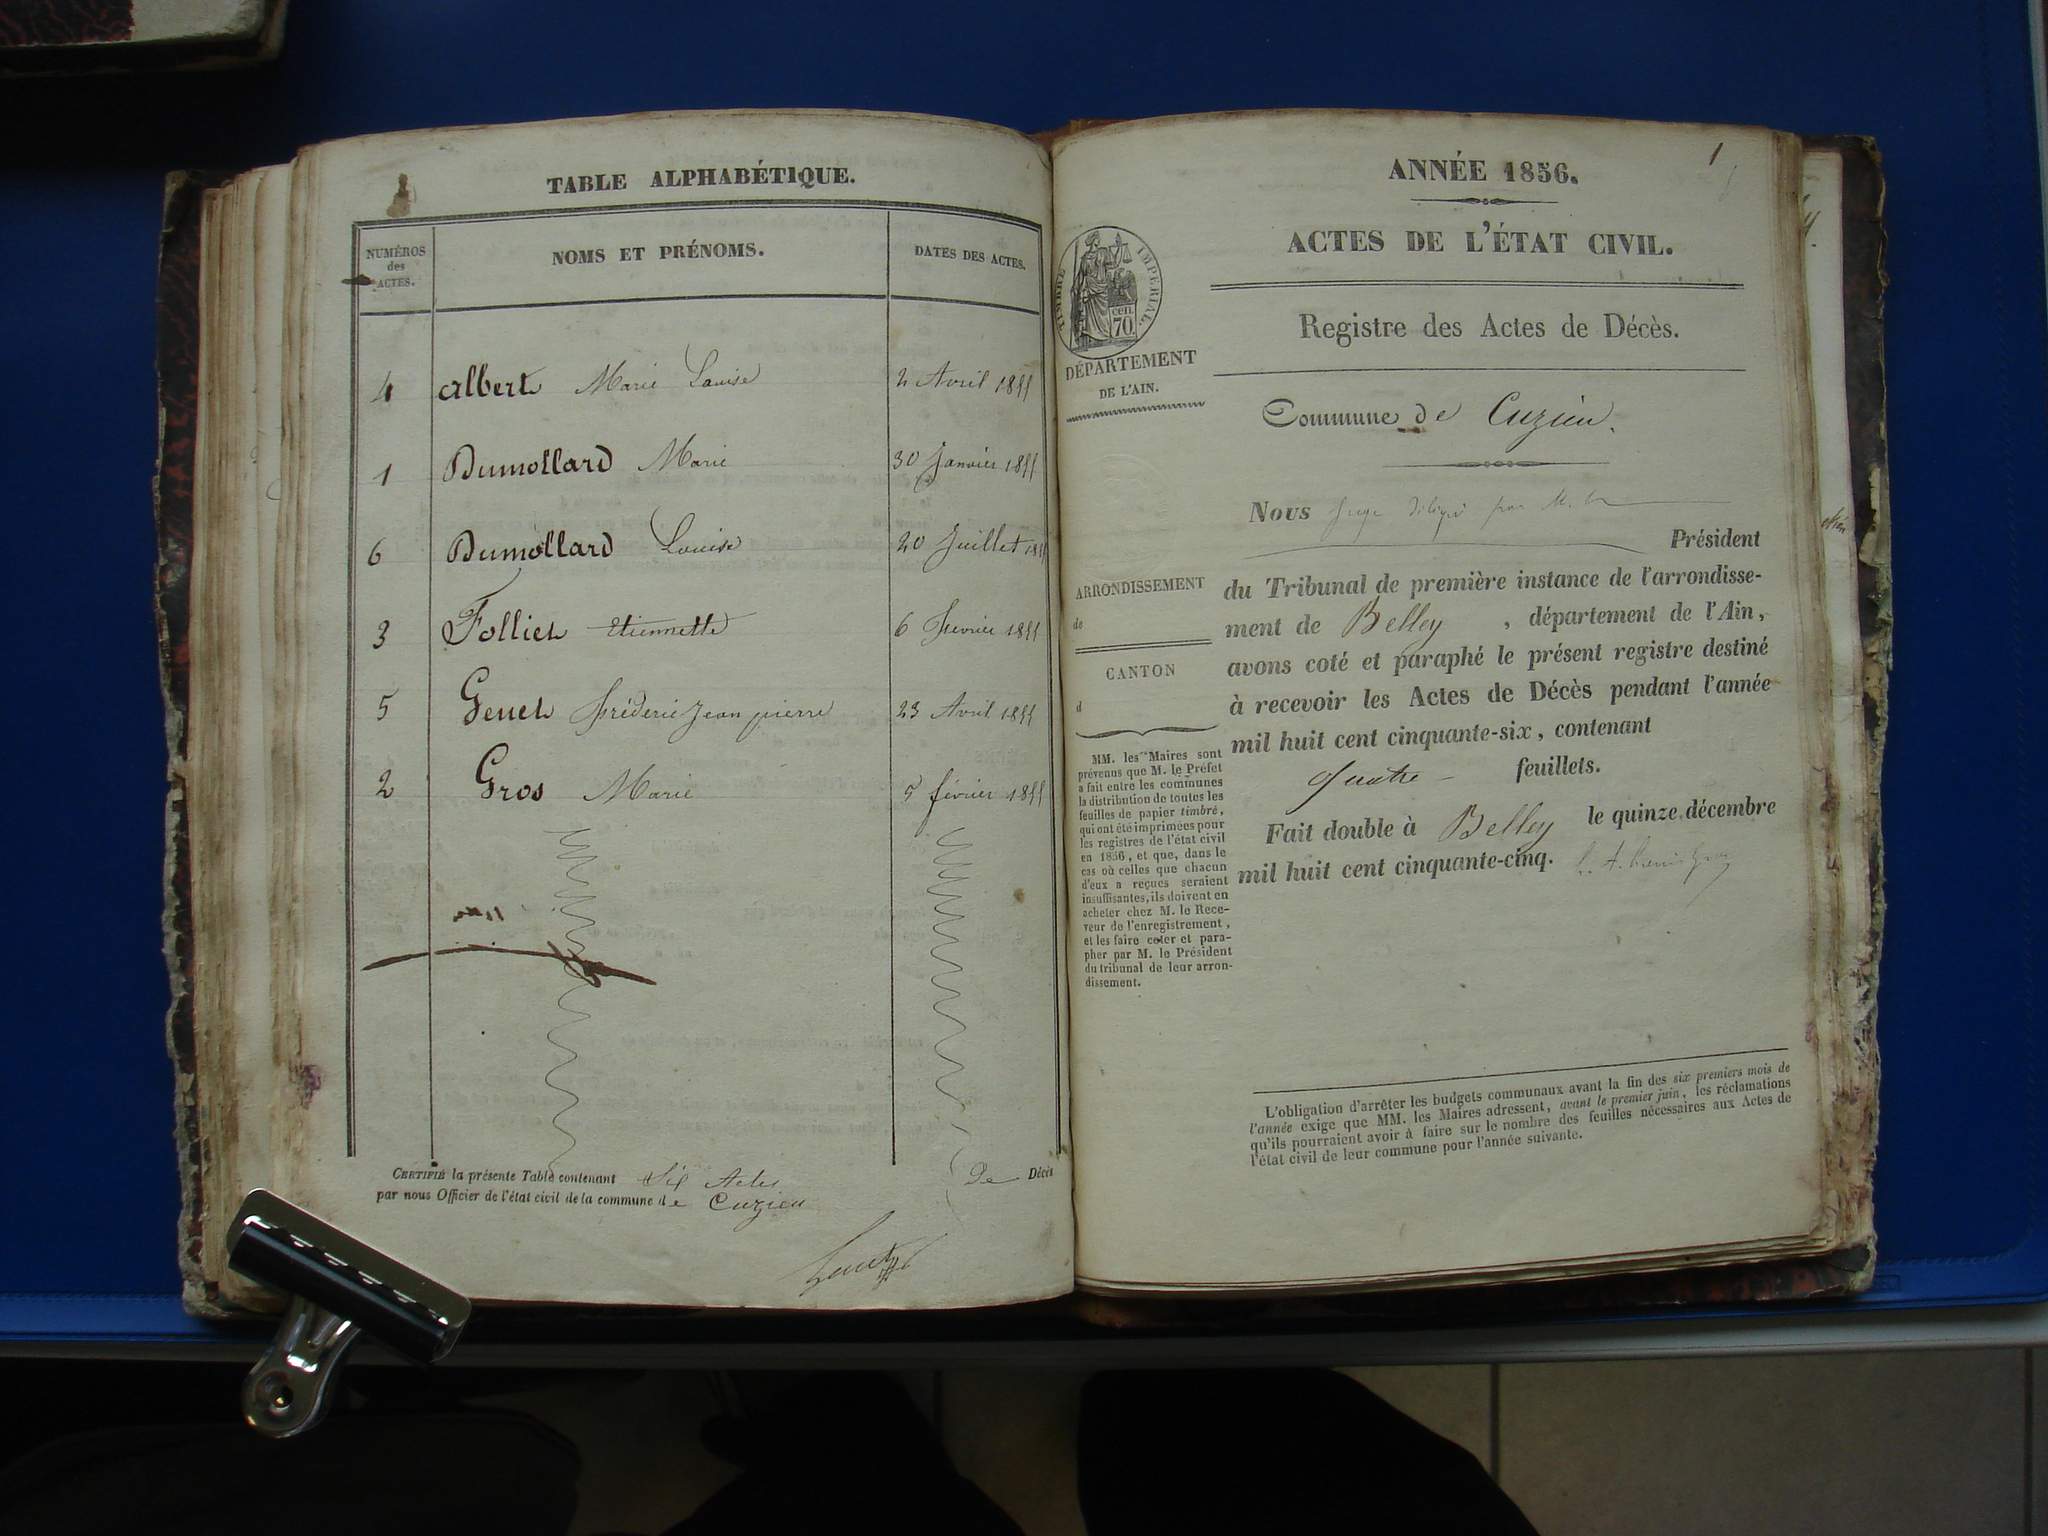 TABLE ALPHABÉTIQUE.
NUMÉROS
des
ACTES.
NOMS ET PRÉNOMS.
DATES DES ACTES.
4 Albert Marie Louise 2 Avril 1855
1 Dumollard Marie 30 Janvier 1855
6 Dumollard Louise 20 Juillet 1855
3 Folliet Etiennette 6 Février 1855
5 Genet fréderic Jean pierre 23 Avril 1855
2 Gros Marie 5 février 1855
CERTIFIÉ la présente Table contenant Six Actes De Décès
par nous Officier de l'état civil de la commune de Cuzieu
1
ANNÉE 1856.
ACTES DE L'ÉTAT CIVIL.
Registre des Actes de Décès.
TIMBRE IMPÉRIAL.
cen.
70
DÉPARTEMENT
DE L'AIN.
Commune de Cuzieu.
Nous Juge délégué par M. le
Président
du Tribunal de première instance de l'arrondisse-
ment de Belley, département de l'Ain,
avons coté et paraphé le présent registre destiné
à recevoir les Actes de Décès pendant l'année
mil huit cent cinquante-six, contenant
quatre feuillets.
Fait double à Belley le quinze décembre
mil huit cent cinquante-cinq.
ARRONDISSEMENT
de
CANTON
d
MM. les Maires sont
prévenus que M. le Préfet
a fait entre les communes
la distribution de toutes les
feuilles de papier timbré,
qui ont été imprimées pour
les registres de l'état civil
en 1856, et que, dans le
cas où celles que chacun
d'eux a reçues seraient
insuffisantes, ils doivent en
acheter chez M. le Rece-
veur de l'enregistrement,
et les faire coter et para-
pher par M. le Président
du tribunal de leur arron-
dissement.
L'obligation d'arrêter les budgets communaux avant la fin des six premiers mois de
l'année exige que MM. les Maires adressent, avant le premier juin, les réclamations
qu'ils pourraient avoir à faire sur le nombre des feuilles nécessaires aux Actes de
l'état civil de leur commune pour l'année suivante.